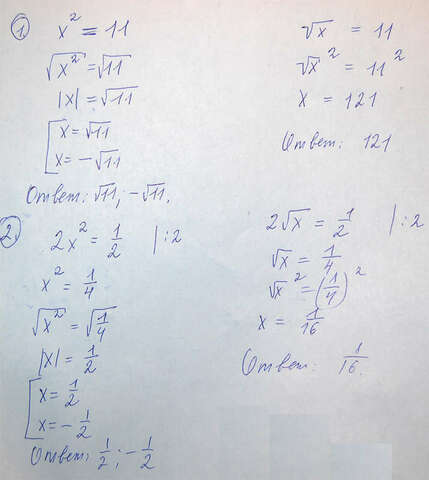 1) x² = 11
√x² = √11
|x| = √11
[x = √11
x = -√11
Ответ: √11; -√11.
√x = 11
√x² = 11²
x = 121
Ответ: 121
2. 2x² = 1/2 |:2
x² = 1/4
√x² = √1/4
|x| = 1/2
[x = 1/2
x = -1/2
Ответ: 1/2; -1/2
2√x = 1/2 |:2
√x = 1/4
√x² = (1/4)²
x = 1/16
Ответ: 1/16.